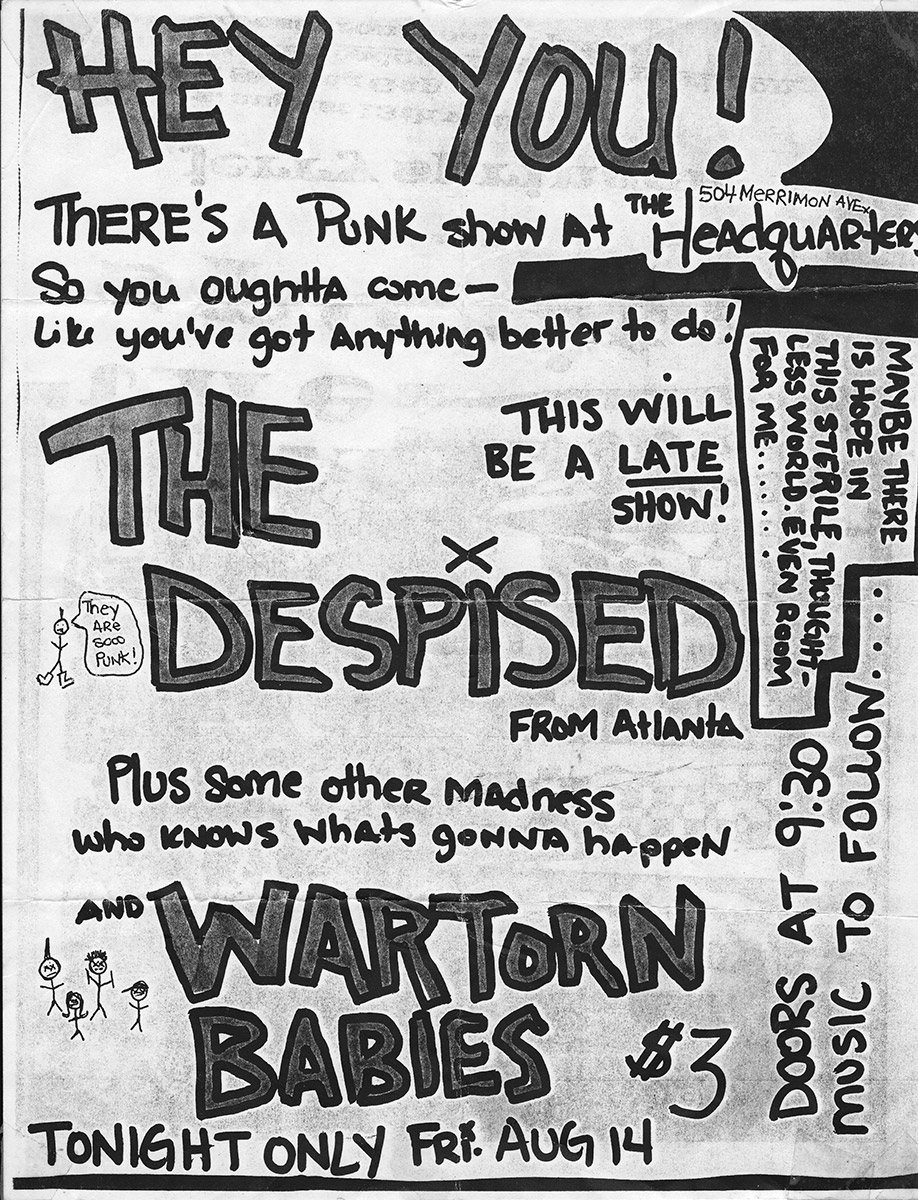 HEY YOU!
THERE'S A PUNK show At THE HeadquARters
504 MERRIMON AVE
So you oughttA come—
Like you've got Anything better to do!
THIS WILL
BE A LATE
SHOW!
MAYBE THERE
IS HOPE IN
THIS STERILE, THOUGHT-
LESS WORLD. EVEN ROOM
FOR ME......
THE
DESPiSED
FROM Atlanta
They
ARe
sooo
PUNK!
Plus some other MAdness
who KNOWS whats gonna happen
AND WARTORN
BABIES
$3
DOORS AT 9:30
MUSIC TO FOLLOW.....
TONIGHT ONLY Fri. AUG 14